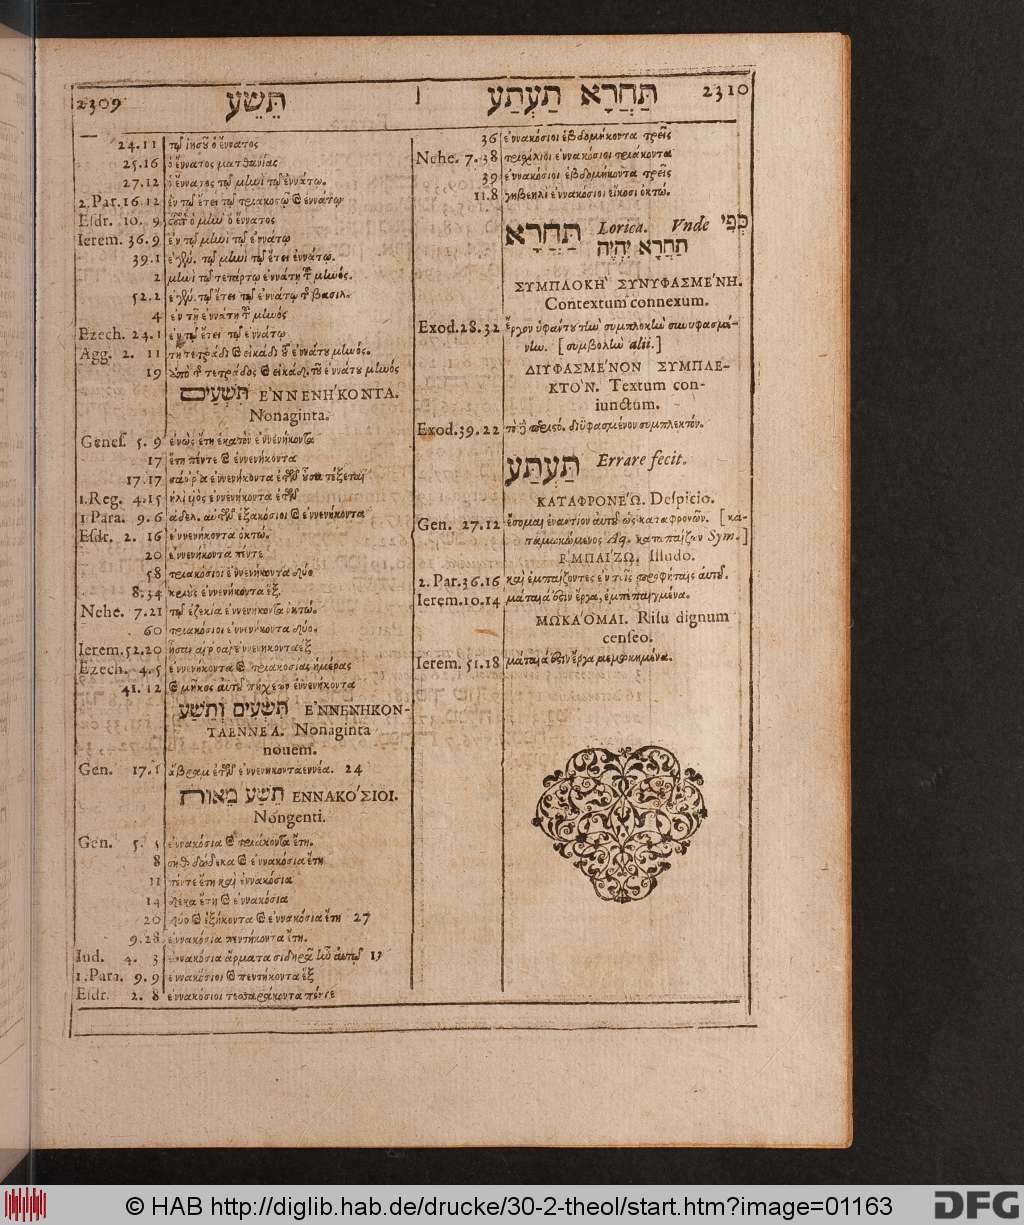 2309 תֵּשֵׁע
תַּחֲרָא תַּעְתַע 2310
24.11 τῷ ἰησοῦ ὁ ἔννατος
25.16 ὁ ἔννατος ματθανίας
27.12 ὁ ἔννατος τῷ μηνὶ τῷ ἐννάτῳ.
2.Par.16.12 ἐν τῷ ἔτει τῷ τριακοστῷ καὶ ἐννάτῳ
Esdr. 10. 9 ὁ μὴν ὁ ἔννατος
Ierem. 36.9 ἐν τῷ μηνὶ τῷ ἐννάτῳ
39.1 τῷ μηνὶ τῷ ἔτει ἐννάτῳ.
2 μηνὶ τῷ τετάρτῳ ἐννάτῃ τοῦ μηνός.
52.2 τῷ ἔτει τῷ ἐννάτῳ τοῦ βασιλ.
4 ἐν τῇ ἐννάτῃ τοῦ μηνὸς
Ezech. 24.1 ἐν τῷ ἔτει τῷ ἐννάτῳ
Agg. 2. 11 τῇ τετράδι καὶ εἰκάδι τοῦ ἐννάτου μηνός.
19 ἀπὸ τῆς τετράδος καὶ εἰκάδ. τοῦ ἐννάτου μηνὸς
תִּשְׁעִים ἘΝΝΕΝΉΚΟΝΤΑ.
Nonaginta.
Genes. 5.9 ἐνὼς ἔτη ἑκατὸν ἐννενήκοντα
17 ἔτη πέντε καὶ ἐννενήκοντα
17.17 σάῤῥα ἐννενήκοντα ἐτῶν οὖσα τέξεται
1.Reg. 4.15 ἐννενήκοντα ἐτῶν
1.Para. 9.6 ἀδελ. αὐτῶν ἑξακόσιοι καὶ ἐννενήκοντα
Esdr. 2. 16 ἐννενήκοντα ὀκτώ.
20 ἐννενήκοντα πέντε
58 τριακόσιοι ἐννενήκοντα δύο
8.34 κριοὺς ἐννενήκοντα ἓξ.
Nehe. 7.21 τῷ ἐζεκία ἐννενήκοντα ὀκτώ.
60 τριακόσιοι ἐννενήκοντα δύο.
Ierem.52.20 ἐννενήκοντα ἓξ
Ezech. 4.5 ἐννενήκοντα καὶ τριακοσίας ἡμέρας
41.12 καὶ μῆκος αὐτοῦ πήχεων ἐννενήκοντα
תִּשְׁעִים וָתֵשַׁע ἘΝΝΕΝΗΚΟΝ-
ΤΑΕΝΝΕΑ. Nonaginta
novem.
Gen. 17.1 ἅβραμ ἐτῶν ἐννενηκονταεννέα. 24
תְּשַׁע מֵאוֹת ΕΝΝΑΚΌΣΙΟΙ.
Nongenti.
Gen. 5. 5 ἐννακόσια καὶ τριάκοντα ἔτη.
8 σὴθ δώδεκα καὶ ἐννακόσια ἔτη
11 πέντε ἔτη καὶ ἐννακόσια
14 δέκα ἔτη καὶ ἐννακόσια
20 δύο καὶ ἑξήκοντα καὶ ἐννακόσια ἔτη 27
9.28 ἐννακόσια πεντήκοντα ἔτη.
Iud. 4. 3 ἐννακόσια ἅρματα σιδηρᾶ ἦν αὐτῷ 13
1.Para. 9.9 ἐννακόσιοι καὶ πεντήκοντα ἓξ
Esdr. 2. 8 ἐννακόσιοι τεσσαράκοντα πέντε
36 ἐννακόσιοι ἑβδομήκοντα τρεῖς
Nehe. 7.38 τρισχίλιοι ἐννακόσιοι τριάκοντα
39 ἐννακόσιοι ἑβδομήκοντα τρεῖς
11.8 γηβεηλὶ ἐννακόσιοι εἴκοσι ὀκτώ.
תַּחֲרָא Lorica. Vnde כְּפִי
תַחֲרָא יִהְיֶה
ΣΥΜΠΛΟΚῊ ΣΥΝΥΦΑΣΜΈΝΗ.
Contextum connexum.
Exod.28.32 ἔργον ὑφάντου τὴν συμπλοκὴν συνυφασμέ-
νην. [συμβολὴν alii.]
ΔΙΥΦΑΣΜΈΝΟΝ ΣΥΜΠΛΕ-
ΚΤΌΝ. Textum con-
iunctum.
Exod.39.22 διϋφασμένον συμπλεκτόν.
תַּעְתַּע Errare fecit.
ΚΑΤΑΦΡΟΝΈΩ. Despicio.
Gen. 27.12 ἔσομαι ἐναντίον αὐτοῦ ὡς καταφρονῶν. [κα-
ταμωκώμενος Aq. καταπαίζων Sym.]
ἘΜΠΑΊΖΩ. Illudo.
2.Par.36.16 καὶ ἐμπαίζοντες ἐν τοῖς προφήταις αὐτοῦ.
Ierem.10.14 μάταιά ἐστιν ἔργα, ἐμπεπαιγμένα.
ΜΩΚΆΟΜΑΙ. Risu dignum
censeo.
Ierem. 51.18 μάταιά ἐστιν ἔργα μεμωκημένα.
© HAB http://diglib.hab.de/drucke/30-2-theol/start.htm?image=01163
DFG